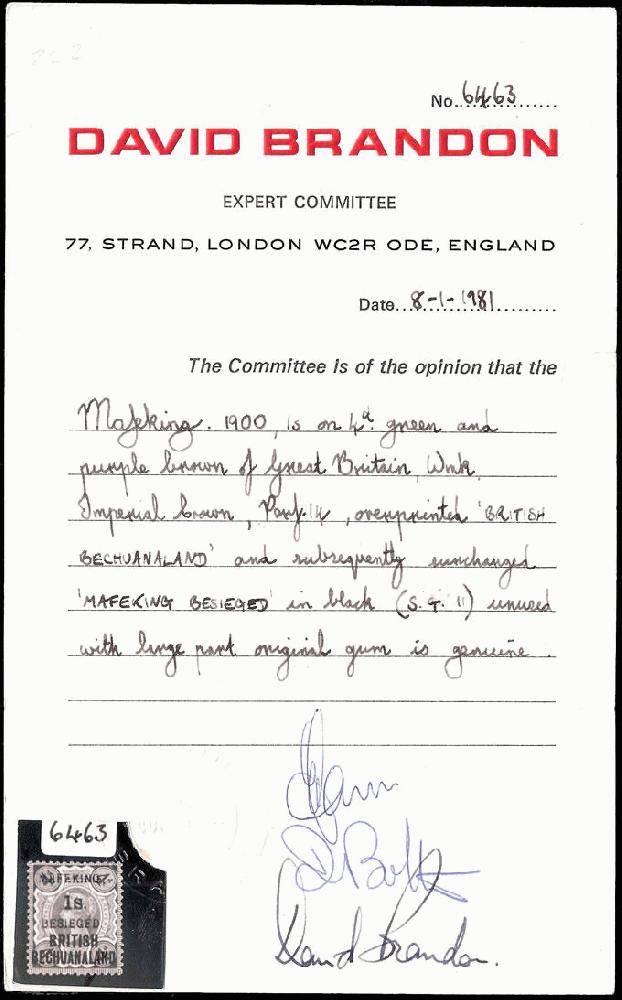 No. 6463
DAVID BRANDON
EXPERT COMMITTEE
77, STRAND, LONDON WC2R ODE, ENGLAND
Date. 8-1-1981
The Committee is of the opinion that the
Mafeking. 1900, 1s on 4d. green and
purple brown of Great Britain, Wmk.
Imperial Crown, Perf. 14, overprinted 'BRITISH
BECHUANALAND' and subsequently surcharged
'MAFEKING BESIEGED' in black (S.G. 11) unused
with large part original gum is genuine.
D. Bolt
David Brandon.
6463
MAFEKING
1s.
BESIEGED
BRITISH
BECHUANALAND